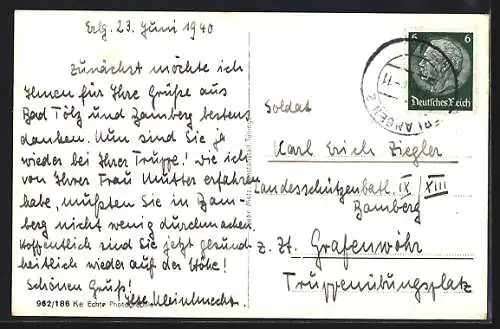 Erlg. 23. Juni 1940
Zunächst möchte ich
Ihnen für Ihre Grüße aus
Bad Tölz und Bamberg bestens
danken. Nun sind Sie ja
wieder bei Ihrer Truppe! Wie ich
von Ihrer Frau Mutter erfahren
habe, mußten Sie in Bam-
berg nicht wenig durchmachen.
Hoffentlich sind Sie jetzt gesund-
heitlich wieder auf der Höhe!
Schönen Gruß!
962/186 Ke Echte Photographie
6 6
Deutsches Reich
ERLANGEN 2
Soldat
Karl Erich Ziegler
Landesschützenbatl. IX/XIII
Bamberg
z. Zt. Grafenwöhr
Truppenübungsplatz